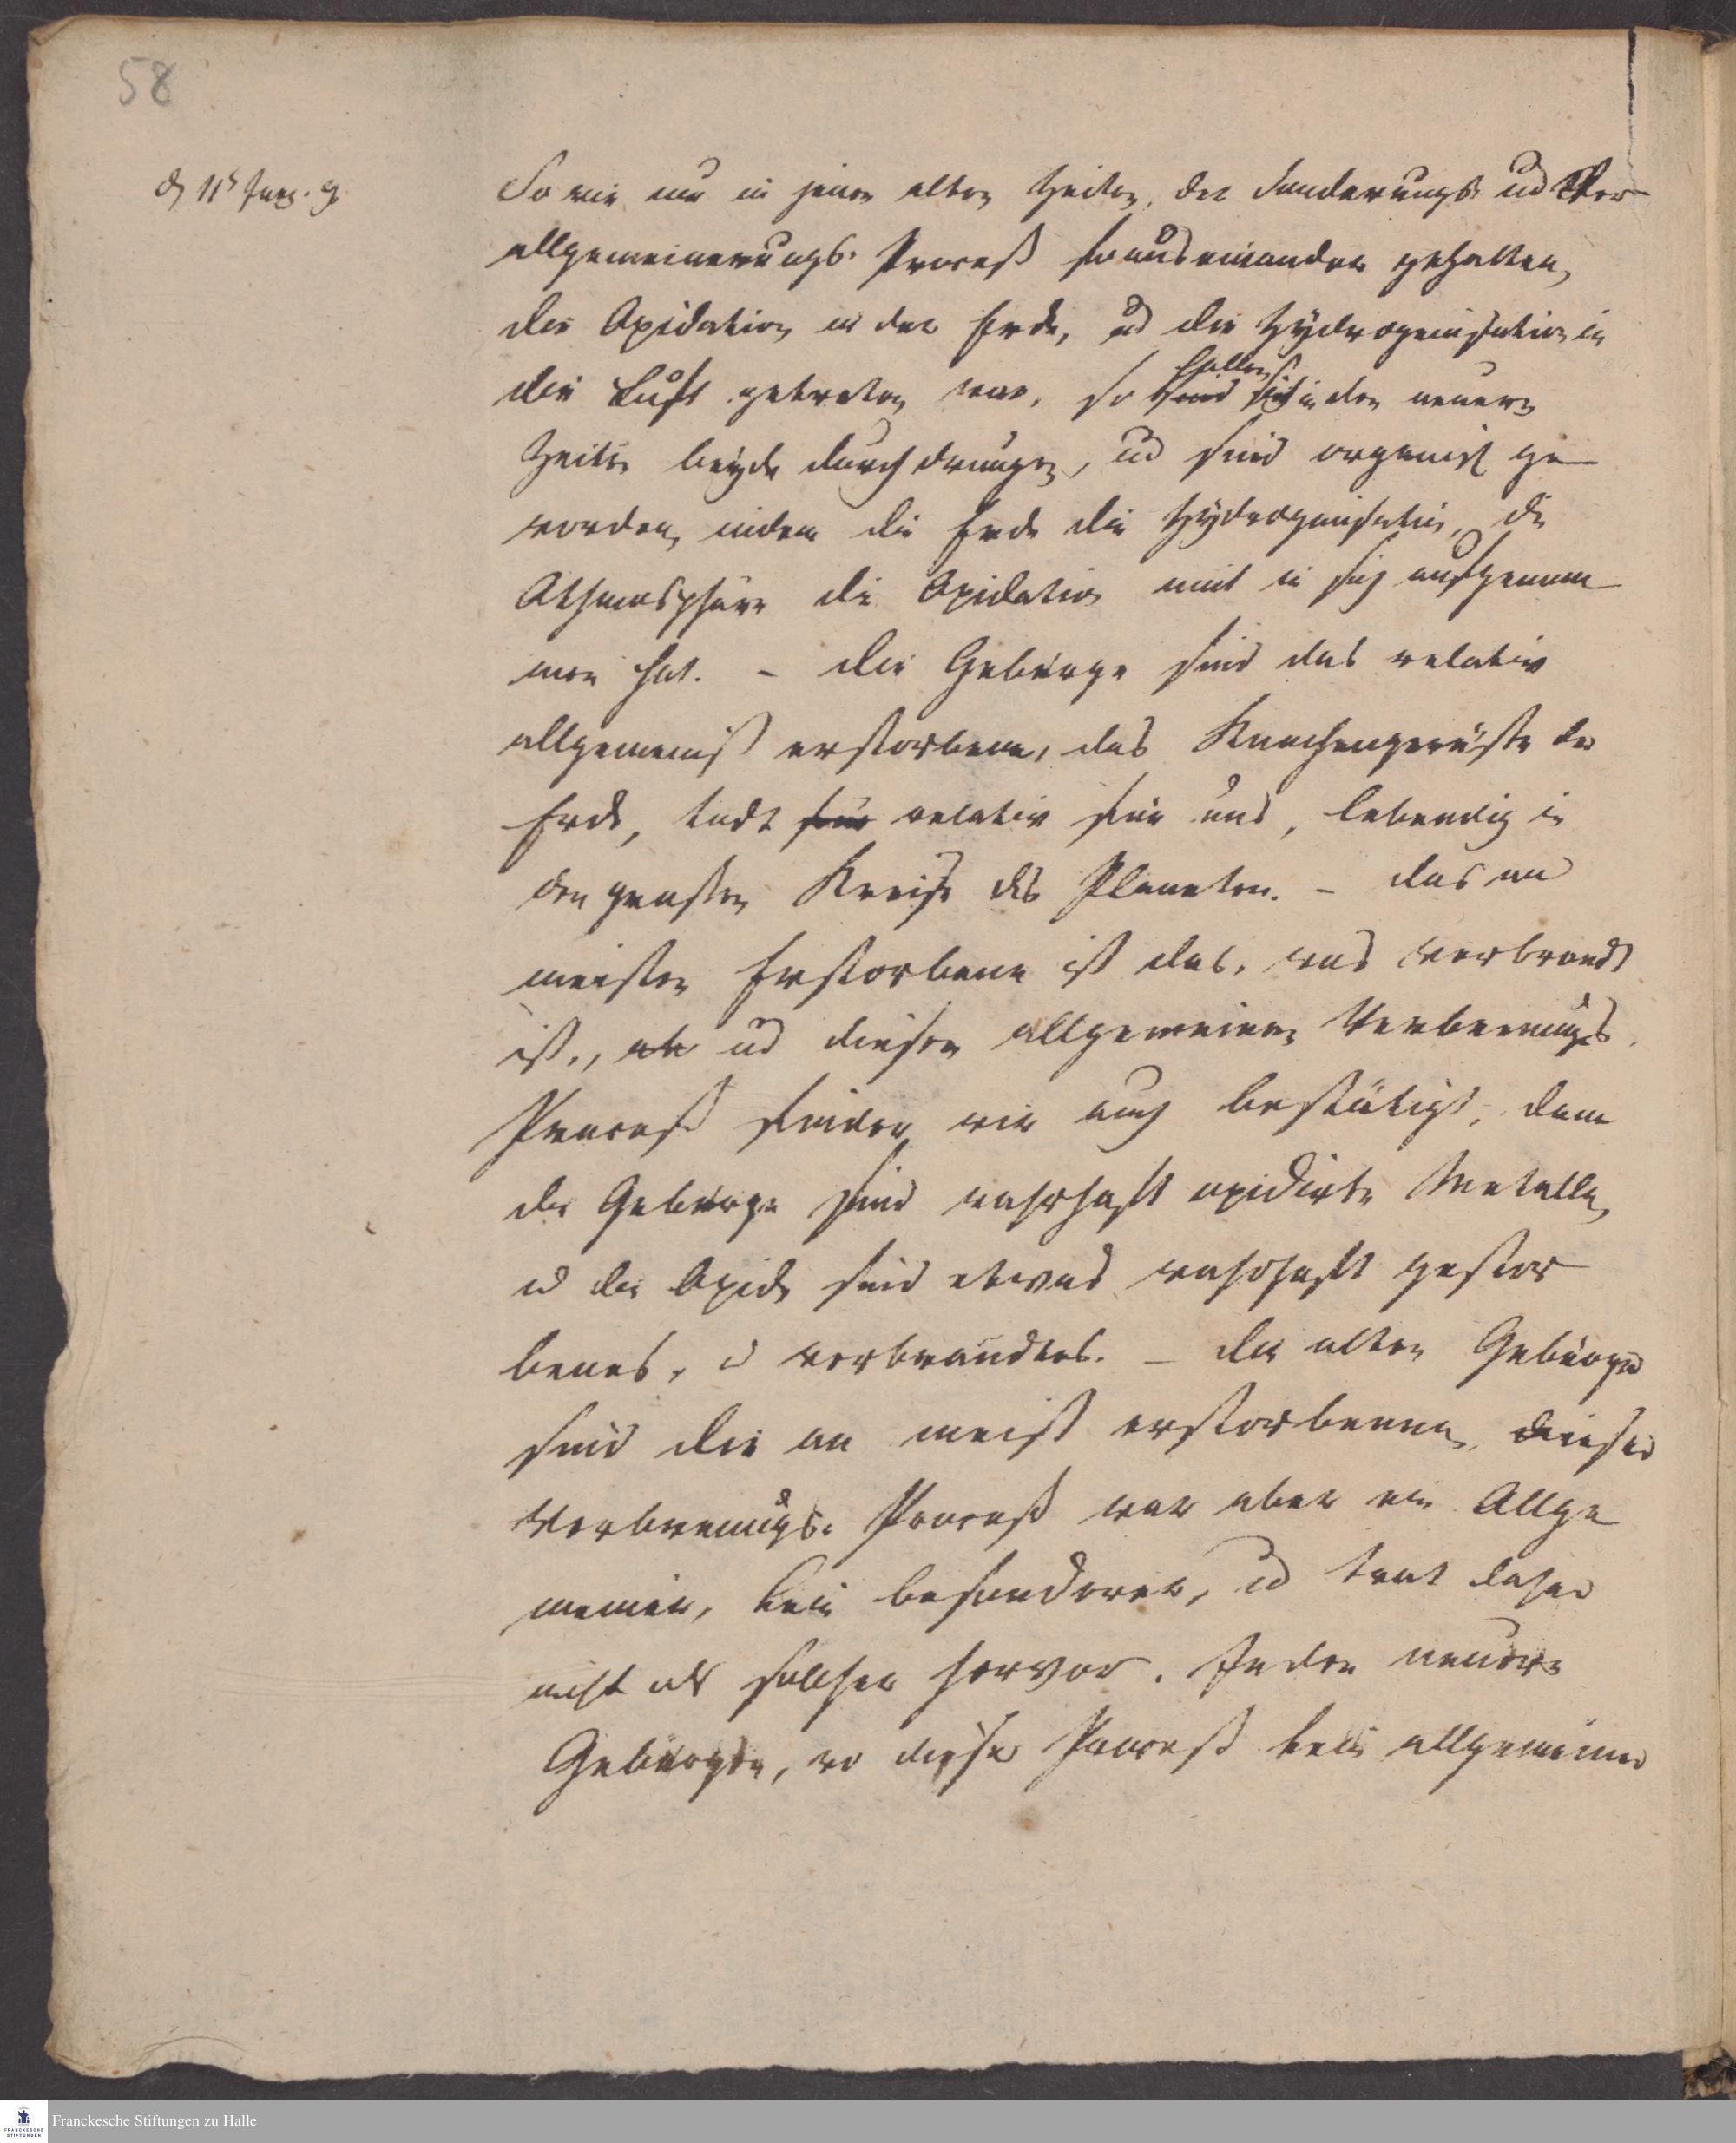 58
d 11t
So wie nun in jenen alten Zeiten, der Sonderungs und Ver
allgemeinerungs. Proceß so auseinander gehalten,
die Oxidation in der Erde, und die Hydrogenisation in
die Luft getreten war, so sind sich in den neuern
hatten
Zeiten beyde durchdrungen, und sind organisch ge
worden, indem die Erde die Hydrogenisation, die
Athmosphäre die Oxidation mit in sich aufgenom
men hat. – Die Gebürge sind das relativ
allgemeinst erstorbene, das Knochengerüste der
Erde, todt für relativ für uns, lebendig in
den großen Kreise des Planeten. – das am
meisten Erstorbene ist das, was verbrandt
ist, und diesen allgemeinen Verbrennungs
Proceß finden wir auch bestätigt, denn
die Gebürge sind wahrhaft oxidirte Metalle,
und die Oxide sind etwas wahrhaft gestor
benes, u verbrandtes. – die alten Gebürge
sind die am meist erstorbenen, dieser
Verbrennungs. Proceß war aber ein Allge
meiner, kein besonderer, und trat daher
nicht als solcher hervor. In den neuern
Gebürgen, wo dieser Proceß kein allgemeiner
Franckesche Stiftungen zu Halle
FRANCKESCHE
STIFTUNGEN